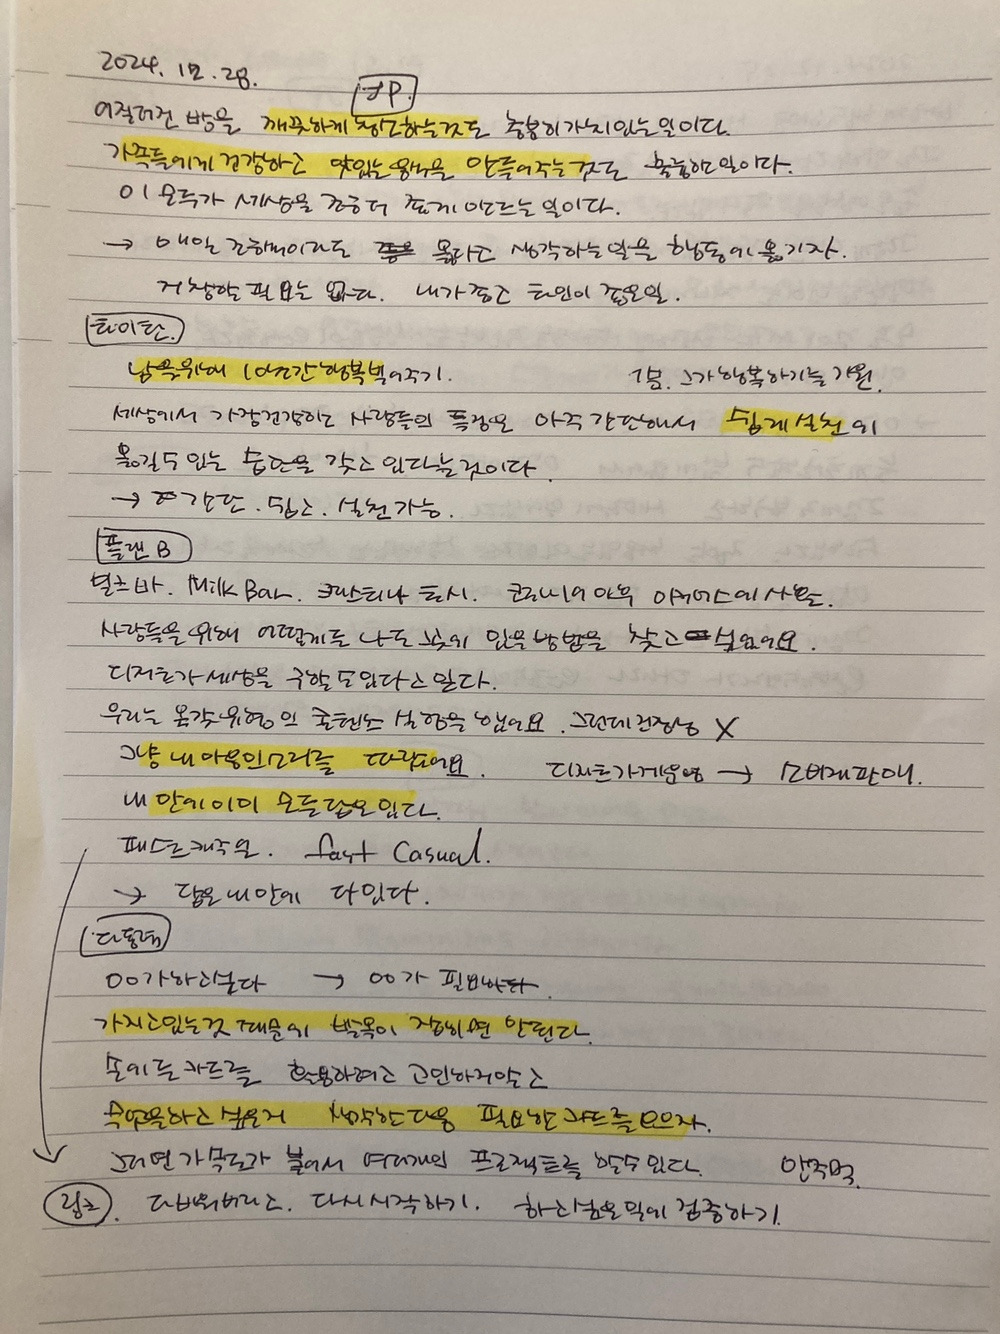 2024. 12. 28.
JP.
어질러진 방을 깨끗하게 청소하는것도 충분히가치있는일이다.
가족들에게 건강하고 맛있는음식을 만들어주는것도 훌륭한일이다.
이 모두가 세상을 조금더 좋게 만드는일이다.
→ 매일 조금씩이라도 옳다고 생각하는일을 행동에옮기자.
거창할 필요는 없다. 내가좋고 타인이 좋은일.
타이탄.
남을위해 10년간행복빌어주기.
그가행복하기를 기원.
세상에서 가장건강하는 사람들의 특징은 아주간단해서 쉽게실천에
옮길수 있는 습관을 갖고 있다는것이다
→ 간단. 쉽고. 실천가능.
플랜B
밀크바. Milk Bar. 크리스티나 토시.
사람들을위해 어떻게든 나도 있을방법을 찾고싶었어요.
디저트가세상을 구할도있다고믿다.
우리는 실험을했어요. 그런데건강상 X
그냥 내마음의소리를 따랐어요. 디저트가게운영 → 소비재판매.
내 안에이미 모든답은있다.
패스트캐주얼. fast Casual.
→ 답은내안에 다있다.
다동력
OO가하고싶다 → OO가 필요하다.
가지고있는것 때문에 발목이 잡히면 안된다.
손에든카드를 활용하려고 고민하지말고
무엇을하고싶은지 생각한다음 필요한카드를모으자.
그러면가속도가 붙어서 여러개의 프로젝트를 할수있다.
링크. 다비워버리고. 다시시작하기. 하고싶은일에집중하기.